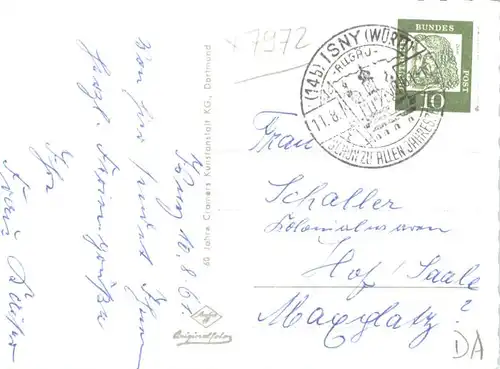 x 7972
Isny 10.8.61.
Von hier sendet Ihnen
herzl. Feriengrüße
Ihr
Franz
60 Jahre Cramers Kunstanstalt KG., Dortmund
Agfa
Originalfoto
(14b) ISNY (WÜRTT)
-ALLGÄU-
11.8.
SCHÖN ZU ALLEN JAHRES
DEUTSCHE
BUNDES
POST
10
Frau
Schaller
Kolonialwaren
Hof/Saale
Maxplatz?
DA